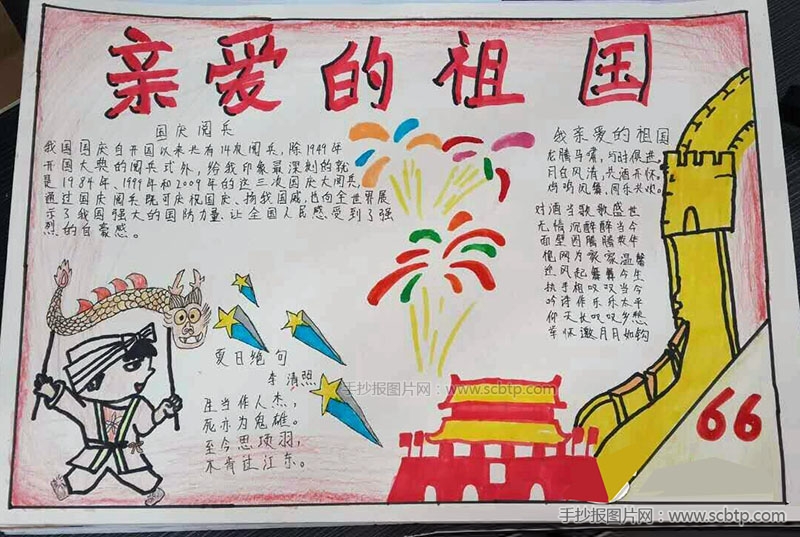 亲爱的祖国
国庆阅兵
我国国庆自开国以来共有14次阅兵,除1949年
开国大典的阅兵式外,给我印象最深刻的就
是1984年、1999年和2009年的这三次国庆大阅兵,
通过国庆阅兵既可庆祝国庆、扬我国威,也向全世界展
示了我国强大的国防力量,让全国人民感受到了强
烈的自豪感。
我亲爱的祖国
龙腾马啸,与时俱进,
月白风清,共酒开怀,
鸡鸣凤舞,同乐共欢。
对酒当歌歌盛世
无情沉醉醉当今
面壁图腾腾数年
网为家家温馨
迎风起舞舞今生
执手相叹叹当今
吟诗作乐乐太平
仰天长叹叹乡愁
举怀邀月月如钩
夏日绝句
李清照
生当作人杰,
死亦为鬼雄。
至今思项羽,
不肯过江东。
66
手抄报图片网:www.scbtp.com
手抄报图片网:www.scbtp.com